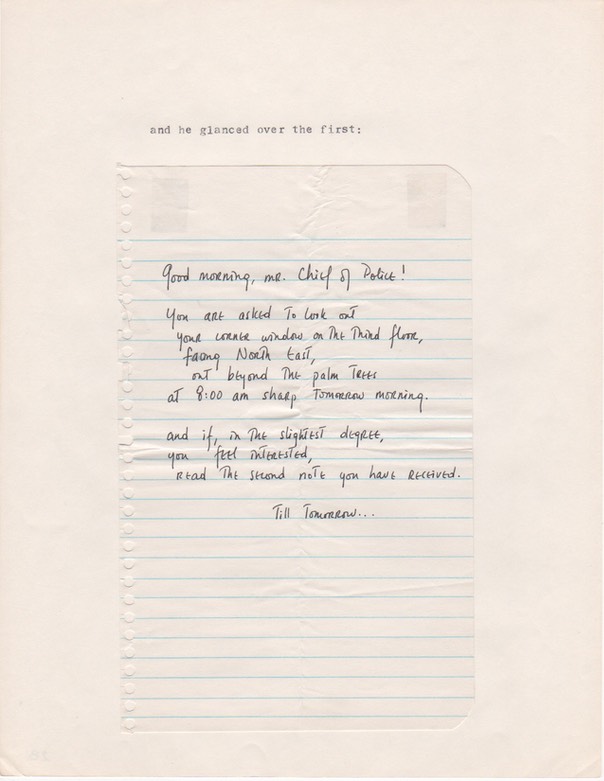 and he glanced over the first:
Good morning, mr. Chief of Police!
You are asked to look out
your corner window on the third floor,
facing North East,
out beyond the palm trees
at 8:00 am sharp tomorrow morning.
and if, in the slightest degree,
you feel interested,
read the second note you have received.
Till Tomorrow...